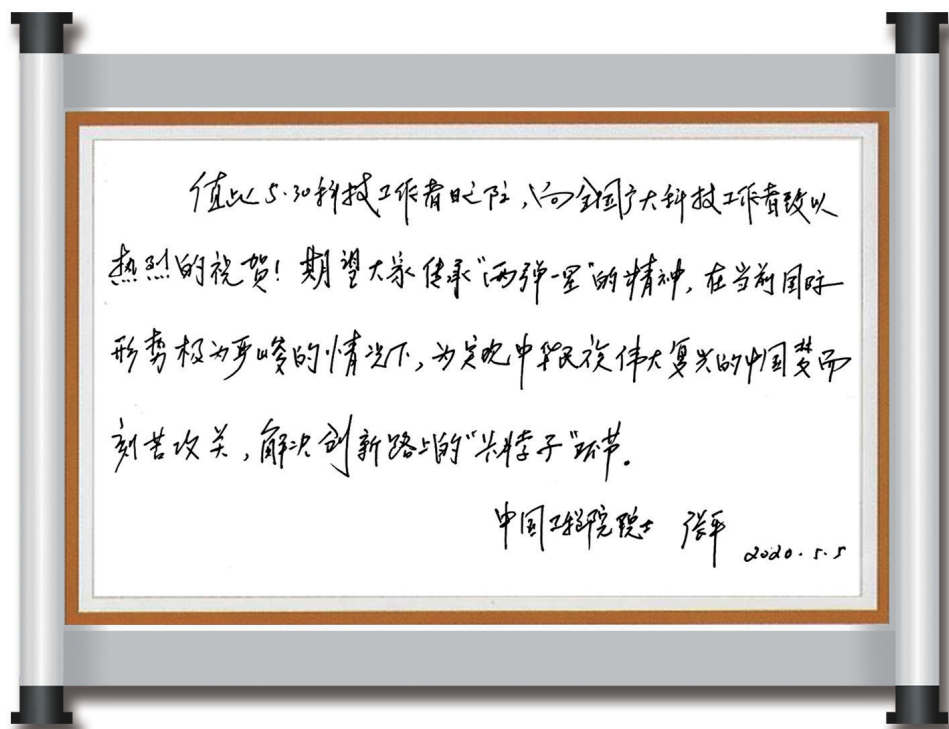 值此5·30科技工作者日之际,向全国广大科技工作者致以
热烈的祝贺!期望大家传承“两弹一星”的精神,在当前国际
形势极为严峻的情况下,为实现中华民族伟大复兴的中国梦而
刻苦攻关,解决创新路上的“卡脖子”环节。
中国工程院院士 张平
2020.5.5